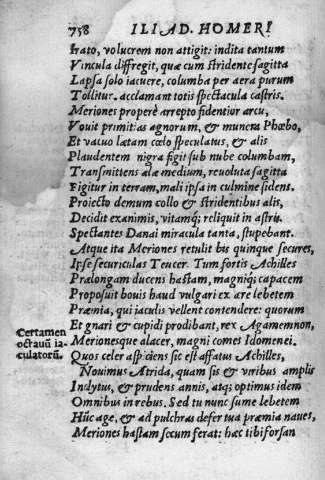 758 ILIAD. HOMERI
Irato, volucrem non attigit: indita tantum
Vincula diffregit, quæ cum stridente sagitta
Lapsa solo iacuere, columba per aera purum
Tollitur. acclamant totis spectacula castris.
Meriones properè arrepto fidentior arcu,
Vouit primitias agnorum, & munera Phœbo,
Et vacuo lætam cœlo speculatus, & alis
Plaudentem nigra figit sub nube columbam,
Transmittens alæ medium, reuoluta sagitta
Figitur in terram, mali ipsa in culmine sidens.
Proiecto demum collo & stridentibus alis,
Decidit exanimis, vitamq; reliquit in astris.
Spectantes Danai miracula tanta, stupebant.
Atque ita Meriones retulit bis quinque secures,
Ipse securiculas Teucer. Tum fortis Achilles
Prælongam ducens hastam, magniq; capacem
Proposuit bouis haud vulgari ex ære lebetem
Præmia, qui iaculis vellent contendere: quorum
Et gnari & cupidi prodibant, rex Agamemnon,
Certamen
octauū ia-
culatorū.
Merionesque alacer, magni comes Idomenei.
Quos celer aspiciens sic est affatus Achilles,
Nouimus Atrida, quam sis & viribus amplis
Inclytus, & prudens annis, atq; optimus idem
Omnibus in rebus. Sed tu nunc sume lebetem
Hūc age, & ad pulchras defer tua præmia naues,
Meriones hastam secum ferat: hæc tibi forsan